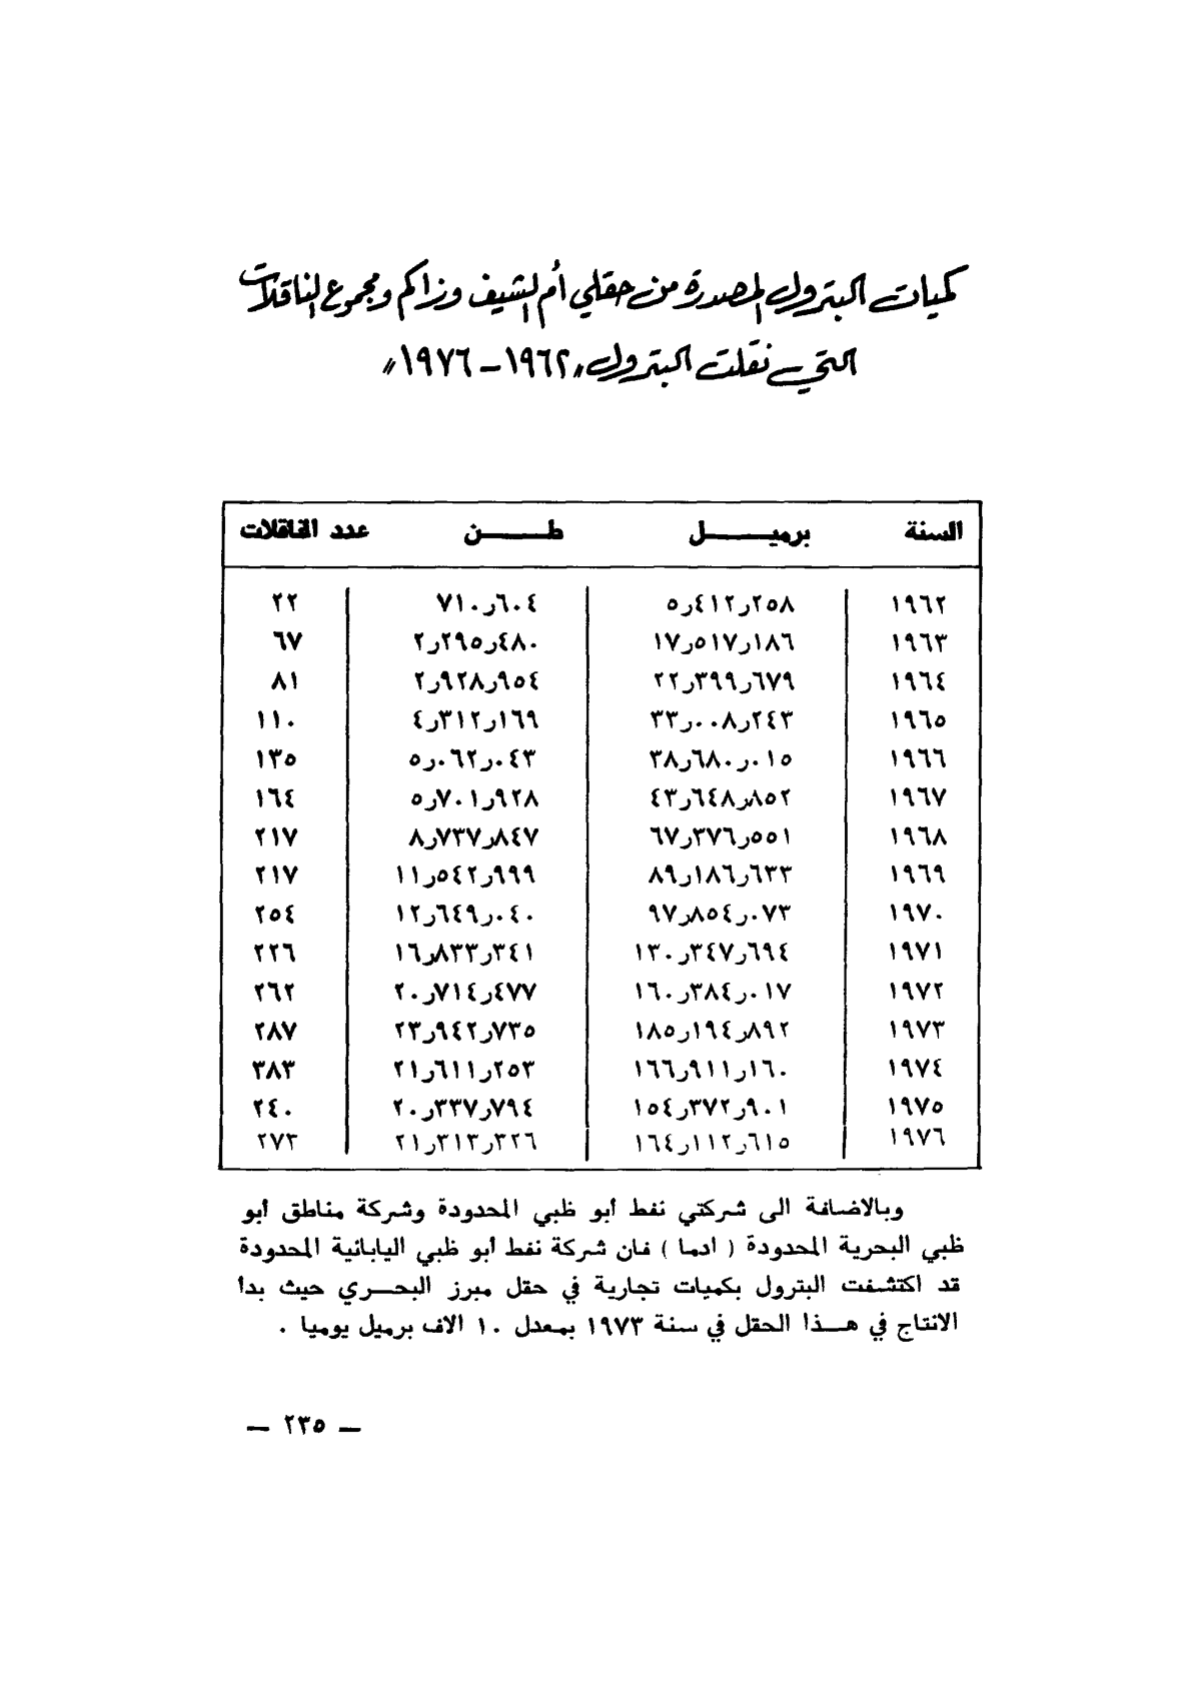 كميات البترول المصدرة من حقلي أم الشيف وزاكم ومجموع الناقلات
التي نقلت البترول «١٩٦٢ – ١٩٧٦»
السنة برميل طن عدد الناقلات
١٩٦٢ ٥٫٤١٢٫٢٥٨ ٧١٠٫٦٠٤ ٢٢
١٩٦٣ ١٧٫٥١٧٫١٨٦ ٢٫٢٩٥٫٤٨٠ ٦٧
١٩٦٤ ٢٢٫٣٩٩٫٦٧٩ ٢٫٩٢٨٫٩٥٤ ٨١
١٩٦٥ ٣٣٫٠٠٨٫٢٤٣ ٤٫٣١٢٫١٦٩ ١١٠
١٩٦٦ ٣٨٫٦٨٠٫٠١٥ ٥٫٠٦٢٫٠٤٣ ١٣٥
١٩٦٧ ٤٣٫٦٤٨٫٨٥٢ ٥٫٧٠١٫٩٢٨ ١٦٤
١٩٦٨ ٦٧٫٣٧٦٫٥٥١ ٨٫٧٣٧٫٨٤٧ ٢١٧
١٩٦٩ ٨٩٫١٨٦٫٦٣٣ ١١٫٥٤٢٫٩٩٩ ٢١٧
١٩٧٠ ٩٧٫٨٥٤٫٠٧٣ ١٢٫٦٤٩٫٠٤٠ ٢٥٤
١٩٧١ ١٣٠٫٣٤٧٫٦٩٤ ١٦٫٨٣٣٫٣٤١ ٢٢٦
١٩٧٢ ١٦٠٫٣٨٤٫٠١٧ ٢٠٫٧١٤٫٤٧٧ ٢٦٢
١٩٧٣ ١٨٥٫١٩٤٫٨٩٢ ٢٣٫٩٤٢٫٧٣٥ ٢٨٧
١٩٧٤ ١٦٦٫٩١١٫١٦٠ ٢١٫٦١١٫٢٥٣ ٣٨٣
١٩٧٥ ١٥٤٫٣٧٢٫٩٠١ ٢٠٫٣٣٧٫٧٩٤ ٢٤٠
١٩٧٦ ١٦٤٫١١٢٫٦١٥ ٢١٫٣١٣٫٣٢٦ ٢٧٣
وبالاضافة الى شركتي نفط أبو ظبي المحدودة وشركة مناطق أبو
ظبي البحرية المحدودة ( ادما ) فان شركة نفط أبو ظبي اليابانية المحدودة
قد اكتشفت البترول بكميات تجارية في حقل مبرز البحري حيث بدأ
الانتاج في هذا الحقل في سنة ١٩٧٣ بمعدل ١٠ الاف برميل يوميا .
— ٢٣٥ —